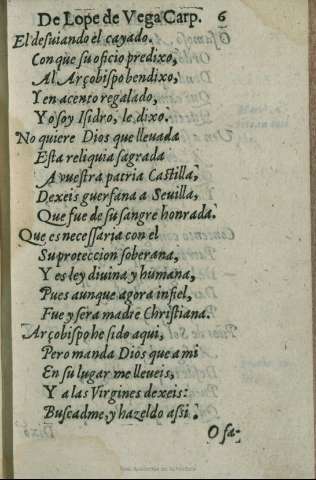 De Lope de Vega Carp. 6
El desuiando el cayado.
Con que su oficio predixo,
Al Arçobispo bendixo,
Y en acento regalado,
Yo soy Isidro, le dixo.
No quiere Dios que lleuada
Esta reliquia sagrada
A vuestra patria Castilla,
Dexeis guerfana a Seuilla,
Que fue de su sangre honrada.
Que es necessaria con el
Su proteccion soberana,
Y es ley diuina y humana,
Pues aunque agora infiel,
Fue y sera madre Christiana.
Arçobispo he sido aqui,
Pero manda Dios que a mi
En su lugar me lleueis,
Y a las Virgines dexeis:
Buscadme, y hazeldo assi.
O sa-